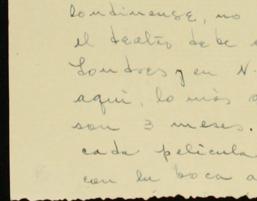 londinense, no
el teatro debe
Londres y en N.
aquí, lo más
son 3 meses.
cada película
con la boca a